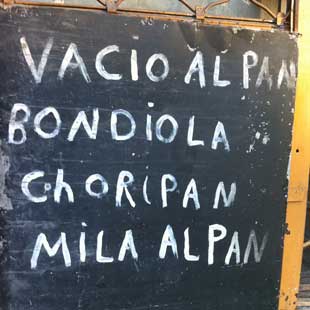 VACIO AL PAN
BONDiOLA
ChORiPAN
MiLA AL PAN